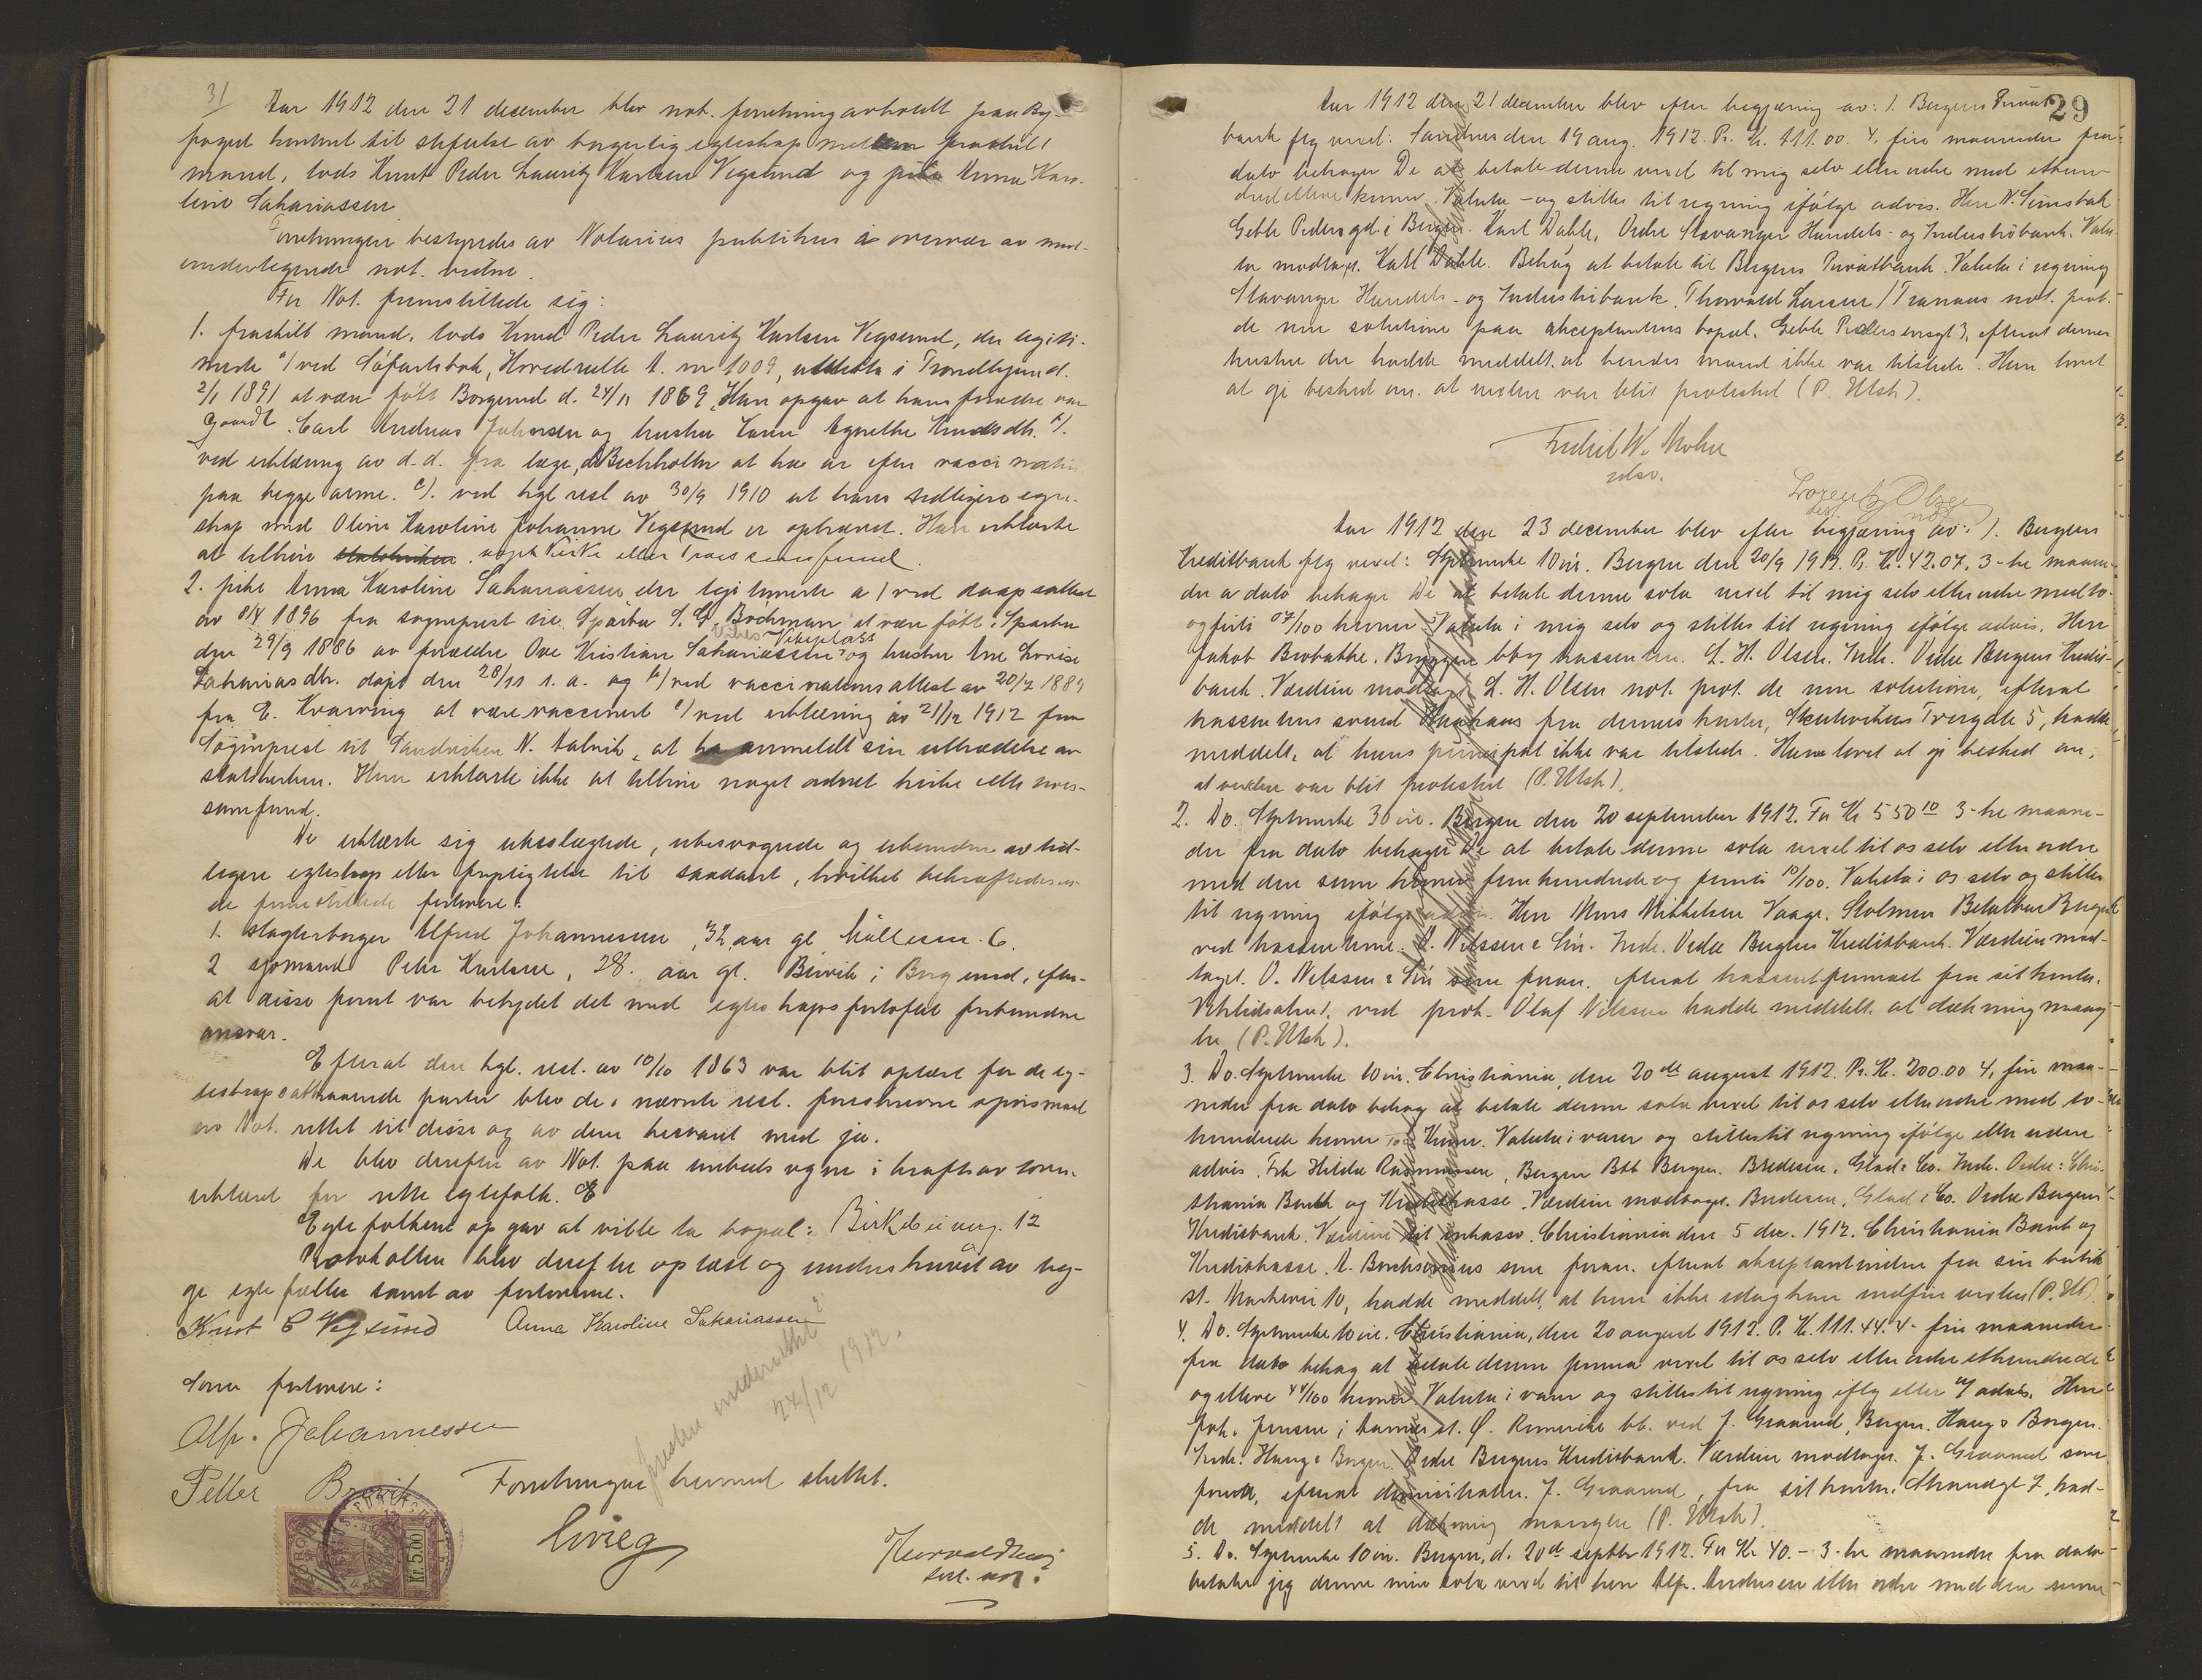 31
Aar 1912 den 21 december blev not. forretning avholdt paa By-
foged kontoret til stiftelse av borgerlig egteskap mellem fraskilt
mand, lods Knut Peder Lauritz Karlsen Vegsund og pike Anna Karo-
line Sakariassen
Forretningen bestyredes av Notarius publikus i overvær av med-
undertegnede not. vidne.
For Not. fremstillede sig:
1. fraskilt mand, lods Knud Peder Lauritz Karlsen Vegsund, der legiti-
merte a) ved Søfartsbok, Hovedrulle A. nr 1009, utstedt i Trondhjem d.
2/1 1891 at være født Borgund d. 24/11 1869. Han opgav at hans forældre var
Gaardbr. Carl Andreas Johnsen og hustru Karen Agnethe Knudsdtr. b).
ved erklæring av d.d. fra læge, at ha ar efter vaccination
paa begge arme. c). ved kgl resl av 30/9 1910 at hans tidligere egte-
skap med Oline Karoline Johanne Vegsund er ophævet. Han erklærte
at tilhøre statskirken. noget kirke eller Troessamfund.
2. pike Anna Karoline Sakariassen der legitimerte a) ved daapsattest
av 8/4 1896 fra sogneprest til Sparbu S. G. Bøchman at være født i Sparbu
den 29/9 1886 av forældre Ove Kristian Sakariassen Vibesplass og hustru Ane Lovise
Sakariasdtr. døpt den 28/11 s. a. og b) ved vaccinationsattest av 20/7 1889
fra E. Kvarving at være vaccinert c) ved erklæring av 21/12 1912 fra
Sogneprest til Sandviken N. Astvik, at ha anmeldt sin uttrædelse av
statskirken. Hun erklærte ikke at tilhøre noget andet kirke eller troes-
samfund.
De erklærte sig ubeslægtede, ubesvogrede og ubundne av tid-
ligere egteskap eller forpligtelse til saadant, hvilket bekræftedes av
de fremstillede forlovere:
1. slagterborger Alfred Johannesen, 32 aar gl. Møllesm. 6.
2 sjømand Peter Karlsen, 28. aar gl. Brevik i Borgund, efter-
at disse forut var betydet det med egteskapsforløftet forbundne
ansvar.
Efterat den kgl. resl. av 10/10 1863 var blit oplæst for de eg-
teskapsattraaende parter blev de i nævnte resl. foreskrevne spørsmaal
av Not. rettet til disse og av dem besvaret med ja.
De blev derefter av Not. paa embeds vegne i kraft av loven
erklæret for rette egtefolk. E
Egtefolkene opgav at ville ta bopæl: Birkebeinerg. 12
Protokollen blev derefter oplæst og underskrevet av beg-
ge egtefæller samt av forloverne.
Knut C Vegsund Anna Karoline Sakariassen
Som forlovere:
Alfr. Johannessen
Petter Brevik
Forretningen hermed sluttet.
presten underrettet
24/12 1912.
Grieg
NORGE
Kr. 5.00
29
Aar 1912 den 21 december blev efter begjæring av: 1. Bergens Privat-
bank flg vexel: Sandnes den 19 aug. 1912. Pr. Kr. 111.00. 4, fire maaneder fra
dato behager De at betale denne vexel til mig selv eller ordre med ethun-
dredelleve kroner. Valuta – og stilles til regning ifølge advis. Herr N. Simsbak
Geble Pedersgd. i Bergen. Karl Dahle. Ordre Stavanger Handels- og Industribank. Valu-
ta modtaget. Karl Dahle. Behag at betale til Bergens Privatbank. Valuta i regning
Stavanger Handels- og Industribank. Thorvald Larsen / Tranaas not. prot.
de non solutione paa akceptantens bopæl, Geble Pedersensgt 3, efterat dennes
hustru der hadde meddelt at hendes mand ikke var tilstede. Hun lovet
at gi besked om, at vexlen var blit protestert (P. Utsk).
Fredrik W. Mohn
Lorentz Olsen
Aar 1912 den 23 december blev efter begjæring av: 1. Bergens
Kreditbank flg vexel: Stpl.merke 10 øre. Bergen den 20/9 1912. Pr. Kr. 42.07. 3-tre maane-
der a dato behager De at betale denne sola vexel til mig selv eller ordre med to-
ogførti 07/100 kroner Valuta i mig selv og stilles til regning ifølge advis. Herr
Jakob Brobakke. Bryggen bby kasseneren. L. H. Olsen. Indr. Ordre Bergens Kredit-
bank. Værdien modtaget L. H. Olsen not. prot. de non solutione, efterat
meddelt, at hans principal ikke var tilstede. Han lovet at gi besked om,
at vexlen var blit protestert (P. Utsk).
2. Do. Stpl.merke 30 øre. Bergen den 20 september 1912. For Kr 550 10 3-tre maane-
der fra dato behager De at betale denne sola vexel til os selv eller ordre
med den sum kroner femhundrede og femti 10/100. Valuta i os selv og stilles
til regning ifølge advis. Herr Mons Mikkelsen Vaage. Stolmen Betalbar Bergen
ved kasserne. O. Nilssen & Søn. Indr. Ordre Bergens Kreditbank. Værdien mod-
taget. O. Nilssen & Søn som foran. efterat
ved prok. Olaf Nilssen hadde meddelt at dækning mang-
let (P. Utsk).
3. Do. Stpl.merke 10 øre. Christiania, den 20de august 1912. Pr. Kr. 200.00 4, fire maa-
neder fra dato behag at betale denne sola vexel til os selv eller ordre med to-
hundrede kroner Kroner. Valuta i varer og stilles til regning ifølge eller uden
advis. Frk Hilda Rasmussen, Bergen Btb Bergen. Bredesen, Glad & Co. Indr. Ordre: Chri-
stiania Bank og Kreditkasse. Værdien modtaget. Bredesen, Glad & Co. Ordre Bergens
Kreditbank. Værdien til inkasso. Christiania den 5 dec. 1912. Christiania Bank og
Kreditkasse. A. Borchsenius som foran. efterat akceptantinden fra sin butik
st. Markevei 10, hadde meddelt, at hun ikke idag kan indfri vexlen (P. Ut).
4. Do. Stpl.merke 10 øre. Christiania, den 20 august 1912. Pr. Kr. 111.44. 4- fire maaneder
fra dato behag at betale denne prima vexel til os selv eller ordre ethundrede
ogelleve 44/100 kroner Valuta i varer og stilles til regning iflg eller u/ advis. Herr
Joh. Jensen i st. Ø. Romerike bb. ved J. Graarud, Bergen. Haug & Borgen.
Indr. Haug & Borgen. Ordre Bergens Kreditbank. Værdien modtaget. J. Graarud som
foran, efterat J. Graarud, fra sit kontor, Strandgt 7, had-
de meddelt at dækning manglet (P. Utsk).
5. Do. Stpl.merke 10 øre. Bergen, d. 20de septbr 1912. For Kr 40.– 3-tre maaneder fra dato
betaler jeg denne min sola vexel til herr Alfr. Andersen eller ordre med den sum